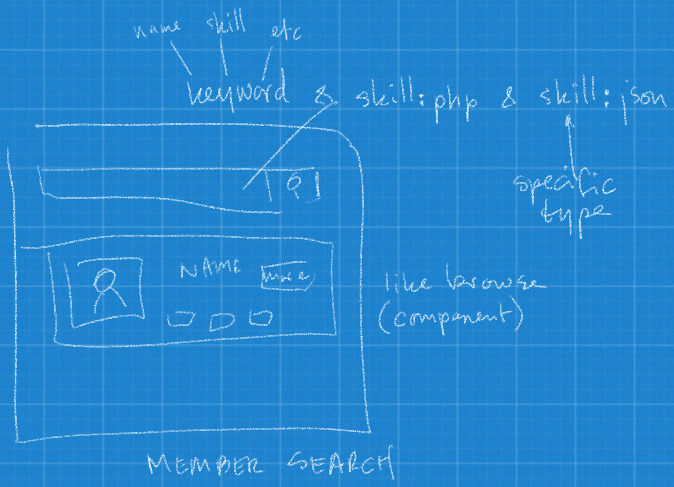 name skill etc
keyword & skill:php & skill:json
specific
type
NAME more
like browse
(component)
MEMBER SEARCH